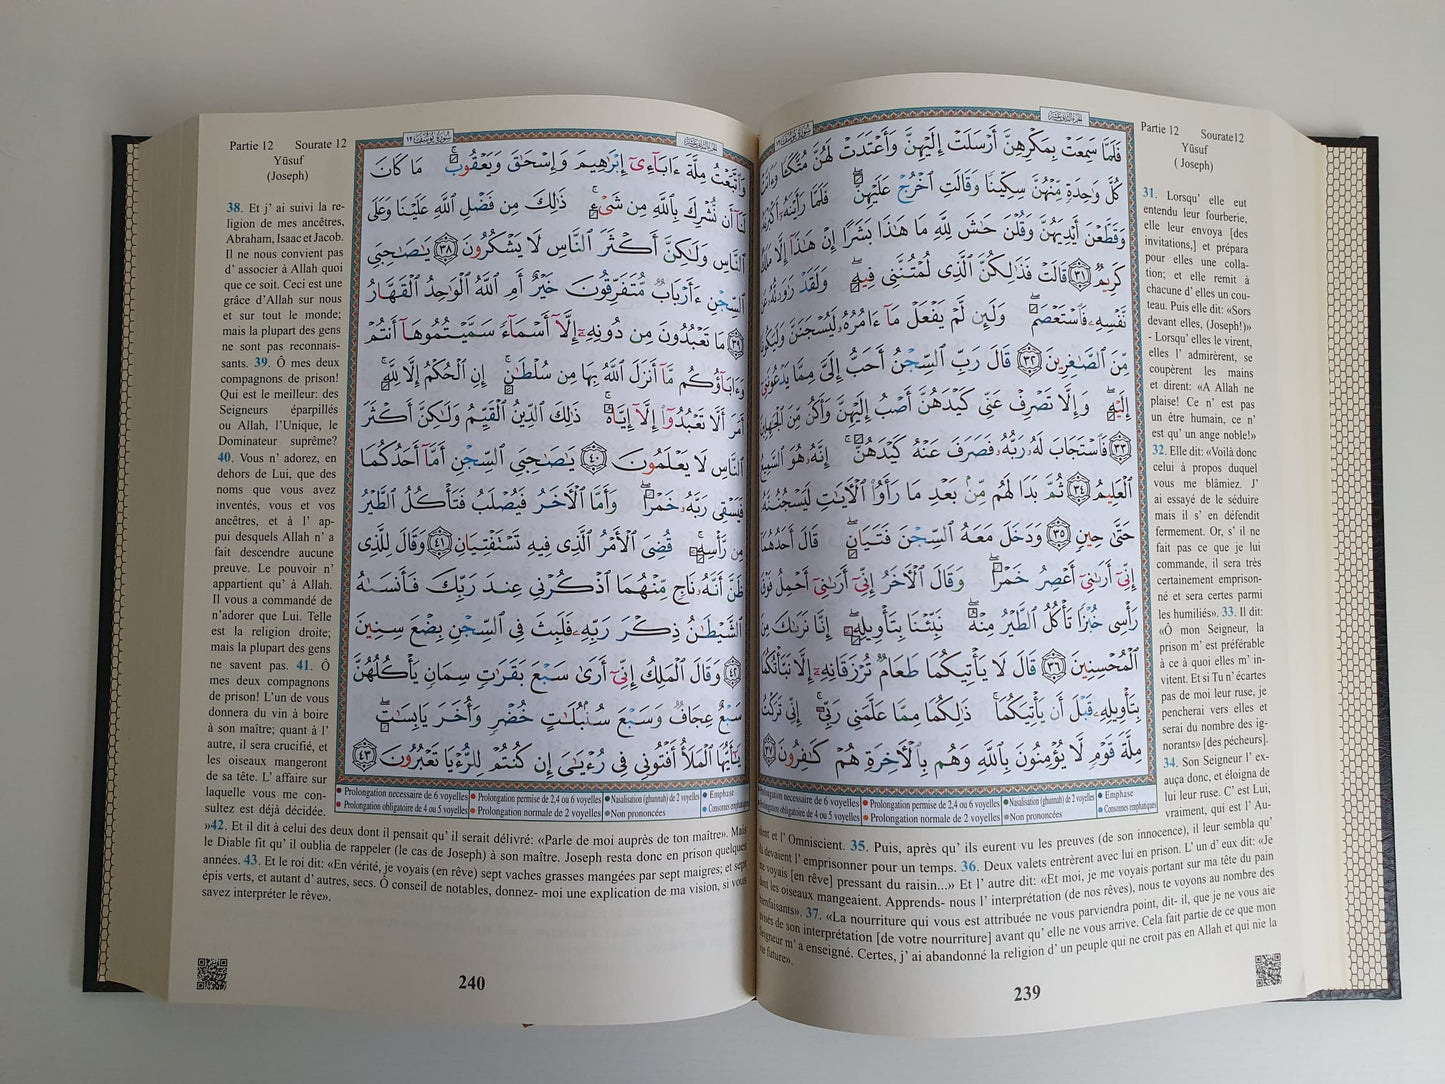 Partie 12 Sourate12
Yūsuf
( Joseph)
فَلَمَّا سَمِعَتْ بِمَكْرِهِنَّ أَرْسَلَتْ إِلَيْهِنَّ وَأَعْتَدَتْ لَهُنَّ مُتَّكَـًٔا وَءَاتَتْ
كُلَّ وَٰحِدَةٍ مِّنْهُنَّ سِكِّينًا وَقَالَتِ ٱخْرُجْ عَلَيْهِنَّ ۖ فَلَمَّا رَأَيْنَهُۥٓ أَكْبَرْنَهُۥ
وَقَطَّعْنَ أَيْدِيَهُنَّ وَقُلْنَ حَٰشَ لِلَّهِ مَا هَٰذَا بَشَرًا إِنْ هَٰذَآ إِلَّا مَلَكٌ
كَرِيمٌ ٣١ قَالَتْ فَذَٰلِكُنَّ ٱلَّذِى لُمْتُنَّنِى فِيهِ ۖ وَلَقَدْ رَٰوَدتُّهُۥ عَن
نَّفْسِهِۦ فَٱسْتَعْصَمَ ۖ وَلَئِن لَّمْ يَفْعَلْ مَآ ءَامُرُهُۥ لَيُسْجَنَنَّ وَلَيَكُونًا
مِّنَ ٱلصَّٰغِرِينَ ٣٢ قَالَ رَبِّ ٱلسِّجْنُ أَحَبُّ إِلَىَّ مِمَّا يَدْعُونَنِىٓ
إِلَيْهِ ۖ وَإِلَّا تَصْرِفْ عَنِّى كَيْدَهُنَّ أَصْبُ إِلَيْهِنَّ وَأَكُن مِّنَ ٱلْجَٰهِلِينَ
٣٣ فَٱسْتَجَابَ لَهُۥ رَبُّهُۥ فَصَرَفَ عَنْهُ كَيْدَهُنَّ ۚ إِنَّهُۥ هُوَ ٱلسَّمِيعُ
ٱلْعَلِيمُ ٣٤ ثُمَّ بَدَا لَهُم مِّنۢ بَعْدِ مَا رَأَوُا۟ ٱلْـَٔايَٰتِ لَيَسْجُنُنَّهُۥ
حَتَّىٰ حِينٍ ٣٥ وَدَخَلَ مَعَهُ ٱلسِّجْنَ فَتَيَانِ ۖ قَالَ أَحَدُهُمَآ
إِنِّىٓ أَرَىٰنِىٓ أَعْصِرُ خَمْرًا ۖ وَقَالَ ٱلْـَٔاخَرُ إِنِّىٓ أَرَىٰنِىٓ أَحْمِلُ فَوْقَ
رَأْسِى خُبْزًا تَأْكُلُ ٱلطَّيْرُ مِنْهُ ۖ نَبِّئْنَا بِتَأْوِيلِهِۦٓ ۖ إِنَّا نَرَىٰكَ مِنَ
ٱلْمُحْسِنِينَ ٣٦ قَالَ لَا يَأْتِيكُمَا طَعَامٌ تُرْزَقَانِهِۦٓ إِلَّا نَبَّأْتُكُمَا
بِتَأْوِيلِهِۦ قَبْلَ أَن يَأْتِيَكُمَا ۚ ذَٰلِكُمَا مِمَّا عَلَّمَنِى رَبِّىٓ ۚ إِنِّى تَرَكْتُ
مِلَّةَ قَوْمٍ لَّا يُؤْمِنُونَ بِٱللَّهِ وَهُم بِٱلْـَٔاخِرَةِ هُمْ كَٰفِرُونَ ٣٧
rolongation necessaire de 6 voyelles • Prolongation permise de 2,4 ou 6 voyelles • Nasalisation (ghunnah) de 2 voyelles • Emphase
rolongation obligatoire de 4 ou 5 voyelles • Prolongation normale de 2 voyelles • Non prononcées • Consonnes emphatiques
31. Lorsqu' elle eut
entendu leur fourberie,
elle leur envoya [des
invitations,] et prépara
pour elles une colla-
tion; et elle remit à
chacune d' elles un cou-
teau. Puis elle dit: «Sors
devant elles, (Joseph!)»
- Lorsqu' elles le virent,
elles l' admirèrent, se
coupèrent les mains
et dirent: «A Allah ne
plaise! Ce n' est pas
un être humain, ce n'
est qu' un ange noble!»
32. Elle dit: «Voilà donc
celui à propos duquel
vous me blâmiez. J'
ai essayé de le séduire
mais il s' en défendit
fermement. Or, s' il ne
fait pas ce que je lui
commande, il sera très
certainement emprison-
né et sera certes parmi
les humiliés». 33. Il dit:
«Ô mon Seigneur, la
prison m' est préférable
à ce à quoi elles m' in-
vitent. Et si Tu n' écartes
pas de moi leur ruse, je
pencherai vers elles et
serai du nombre des ig-
norants» [des pécheurs].
34. Son Seigneur l' ex-
auça donc, et éloigna de
lui leur ruse. C' est Lui,
vraiment, qui est l' Au-
dient et l' Omniscient. 35. Puis, après qu' ils eurent vu les preuves (de son innocence), il leur sembla qu'
ils devaient l' emprisonner pour un temps. 36. Deux valets entrèrent avec lui en prison. L' un d' eux dit: «Je
me voyais [en rêve] pressant du raisin...» Et l' autre dit: «Et moi, je me voyais portant sur ma tête du pain
dont les oiseaux mangeaient. Apprends- nous l' interprétation (de nos rêves), nous te voyons au nombre des
bienfaisants». 37. «La nourriture qui vous est attribuée ne vous parviendra point, dit- il, que je ne vous aie
avisés de son interprétation [de votre nourriture] avant qu' elle ne vous arrive. Cela fait partie de ce que mon
Seigneur m' a enseigné. Certes, j' ai abandonné la religion d' un peuple qui ne croit pas en Allah et qui nie la
vie future».
239
Partie 12 Sourate 12
Yūsuf
(Joseph)
سُورَةُ يُوسُفَ ١٢
وَٱتَّبَعْتُ مِلَّةَ ءَابَآءِىٓ إِبْرَٰهِيمَ وَإِسْحَٰقَ وَيَعْقُوبَ ۚ مَا كَانَ
لَنَآ أَن نُّشْرِكَ بِٱللَّهِ مِن شَىْءٍ ۚ ذَٰلِكَ مِن فَضْلِ ٱللَّهِ عَلَيْنَا وَعَلَى
ٱلنَّاسِ وَلَٰكِنَّ أَكْثَرَ ٱلنَّاسِ لَا يَشْكُرُونَ ٣٨ يَٰصَٰحِبَىِ
ٱلسِّجْنِ ءَأَرْبَابٌ مُّتَفَرِّقُونَ خَيْرٌ أَمِ ٱللَّهُ ٱلْوَٰحِدُ ٱلْقَهَّارُ
٣٩ مَا تَعْبُدُونَ مِن دُونِهِۦٓ إِلَّآ أَسْمَآءً سَمَّيْتُمُوهَآ أَنتُمْ
وَءَابَآؤُكُم مَّآ أَنزَلَ ٱللَّهُ بِهَا مِن سُلْطَٰنٍ ۚ إِنِ ٱلْحُكْمُ إِلَّا لِلَّهِ ۚ
أَمَرَ أَلَّا تَعْبُدُوٓا۟ إِلَّآ إِيَّاهُ ۚ ذَٰلِكَ ٱلدِّينُ ٱلْقَيِّمُ وَلَٰكِنَّ أَكْثَرَ
ٱلنَّاسِ لَا يَعْلَمُونَ ٤٠ يَٰصَٰحِبَىِ ٱلسِّجْنِ أَمَّآ أَحَدُكُمَا
فَيَسْقِى رَبَّهُۥ خَمْرًا ۖ وَأَمَّا ٱلْـَٔاخَرُ فَيُصْلَبُ فَتَأْكُلُ ٱلطَّيْرُ
مِن رَّأْسِهِۦ ۚ قُضِىَ ٱلْأَمْرُ ٱلَّذِى فِيهِ تَسْتَفْتِيَانِ ٤١ وَقَالَ لِلَّذِى
ظَنَّ أَنَّهُۥ نَاجٍ مِّنْهُمَا ٱذْكُرْنِى عِندَ رَبِّكَ فَأَنسَىٰهُ
ٱلشَّيْطَٰنُ ذِكْرَ رَبِّهِۦ فَلَبِثَ فِى ٱلسِّجْنِ بِضْعَ سِنِينَ
٤٢ وَقَالَ ٱلْمَلِكُ إِنِّىٓ أَرَىٰ سَبْعَ بَقَرَٰتٍ سِمَانٍ يَأْكُلُهُنَّ
سَبْعٌ عِجَافٌ وَسَبْعَ سُنۢبُلَٰتٍ خُضْرٍ وَأُخَرَ يَابِسَٰتٍ ۖ
يَٰٓأَيُّهَا ٱلْمَلَأُ أَفْتُونِى فِى رُءْيَٰىَ إِن كُنتُمْ لِلرُّءْيَا تَعْبُرُونَ ٤٣
• Prolongation necessaire de 6 voyelles • Prolongation permise de 2,4 ou 6 voyelles • Nasalisation (ghunnah) de 2 voyelles • Emphase
• Prolongation obligatoire de 4 ou 5 voyelles • Prolongation normale de 2 voyelles • Non prononcées • Consonnes emphatiques
38. Et j' ai suivi la re-
ligion de mes ancêtres,
Abraham, Isaac et Jacob.
Il ne nous convient pas
d' associer à Allah quoi
que ce soit. Ceci est une
grâce d'Allah sur nous
et sur tout le monde;
mais la plupart des gens
ne sont pas reconnais-
sants. 39. Ô mes deux
compagnons de prison!
Qui est le meilleur: des
Seigneurs éparpillés
ou Allah, l'Unique, le
Dominateur suprême?
40. Vous n' adorez, en
dehors de Lui, que des
noms que vous avez
inventés, vous et vos
ancêtres, et à l' ap-
pui desquels Allah n' a
fait descendre aucune
preuve. Le pouvoir n'
appartient qu' à Allah.
Il vous a commandé de
n'adorer que Lui. Telle
est la religion droite;
mais la plupart des gens
ne savent pas. 41. Ô
mes deux compagnons
de prison! L'un de vous
donnera du vin à boire
à son maître; quant à l'
autre, il sera crucifié, et
les oiseaux mangeront
de sa tête. L' affaire sur
laquelle vous me con-
sultez est déjà décidée.
»42. Et il dit à celui des deux dont il pensait qu' il serait délivré: «Parle de moi auprès de ton maître». Mais
le Diable fit qu' il oublia de rappeler (le cas de Joseph) à son maître. Joseph resta donc en prison quelques
années. 43. Et le roi dit: «En vérité, je voyais (en rêve) sept vaches grasses mangées par sept maigres; et sept
épis verts, et autant d' autres, secs. Ô conseil de notables, donnez- moi une explication de ma vision, si vous
savez interpréter le rêve».
240